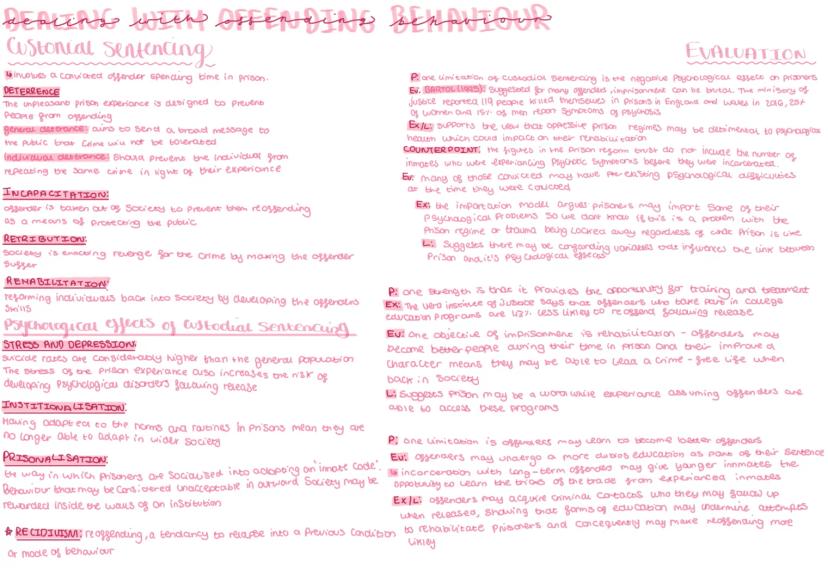 DEALING WITH OFFENDING BEHAVIOUR
Custodial Sentencing
↳ involves a convicted offender spending time in prison.
DETERRENCE
The unpleasant prison experience is designed to prevent
people from offending
general deterrence aims to send a broad message to
the public that crime will not be tolerated
individual deterrence should prevent the individual from
repeating the same crime in light of their experience
INCAPACITATION:
offender is taken out of society to prevent them reoffending
as a means of protecting the public
RETRIBUTION:
society is enacting revenge for the crime by making the offender
suffer
REHABILITATION:
reforming individuals back into society by developing the offenders
skills
Psychological effects of custodial sentencing
STRESS AND DEPRESSION:
suicide rates are considerably higher than the general population
The stress of the prison experience also increases the risk of
developing psychological disorders following release
INSTITIONALISATION:
Having adapted to the norms and routines in prisons mean they are
no longer able to adapt in wider society
PRISONALISATION:
the way in which prisoners are socialised into adopting an 'inmate code'.
Behaviour that may be considered unacceptable in outward society may be
rewarded inside the walls of an institution
★ RECIDIVISM: reoffending, a tendency to relapse into a previous condition
or mode of behaviour
EVALUATION
P: one limitation of custodial sentencing is the negative psychological effect on prisoners
Ev: BARTOL (1995) suggested for many offenders, imprisonment can be brutal. The ministry of
justice reported 119 people killed themselves in prisons in England and Wales in 2016, 25%
of women and 15% of men report symptoms of psychosis
Ex/L: supports the view that oppressive prison regimes may be detrimental to psychological
health which could impact on their rehabilitation
COUNTERPOINT: the figures in the prison reform trust do not include the number of
inmates who were experiencing psychotic symptoms before they were incarcerated.
Ev: many of those convicted may have pre-existing psychological difficulties
at the time they were convicted
Ex: the importation model argues prisoners may import some of their
psychological problems so we don't know if this is a problem with the
prison regime or trauma being locked away regardless of what prison is like
L: suggests there may be confounding variables that influences the link between
prison and it's psychological effects
P: one strength is that it provides the opportunity for training and treatment
Ex: The vera institute of justice says that offenders who take part in college
education programs are 43% less likley to reoffend following release
Ev: one objective of imprisonment is rehabilitation - offenders may
become better people during their time in prison and their improve d
character means they may be able to lead a crime-free life when
back in society
L: suggests prison may be a worthwhile experience assuming offenders are
able to access these programs
P: one limitation is offenders may learn to become better offenders
Ev: offenders may undergo a more dubios education as part of their sentence
↳ incarceration with long-term offended may give younger innmates the
oppotunity to learn the tricks of the trade from experienced inmates
Ex/L: offenders may acquire criminal contacts who they may follow up
when released, showing that forms of education may undermine attempts
to rehabilitate prisoners and concequently may make reoffending more
likley